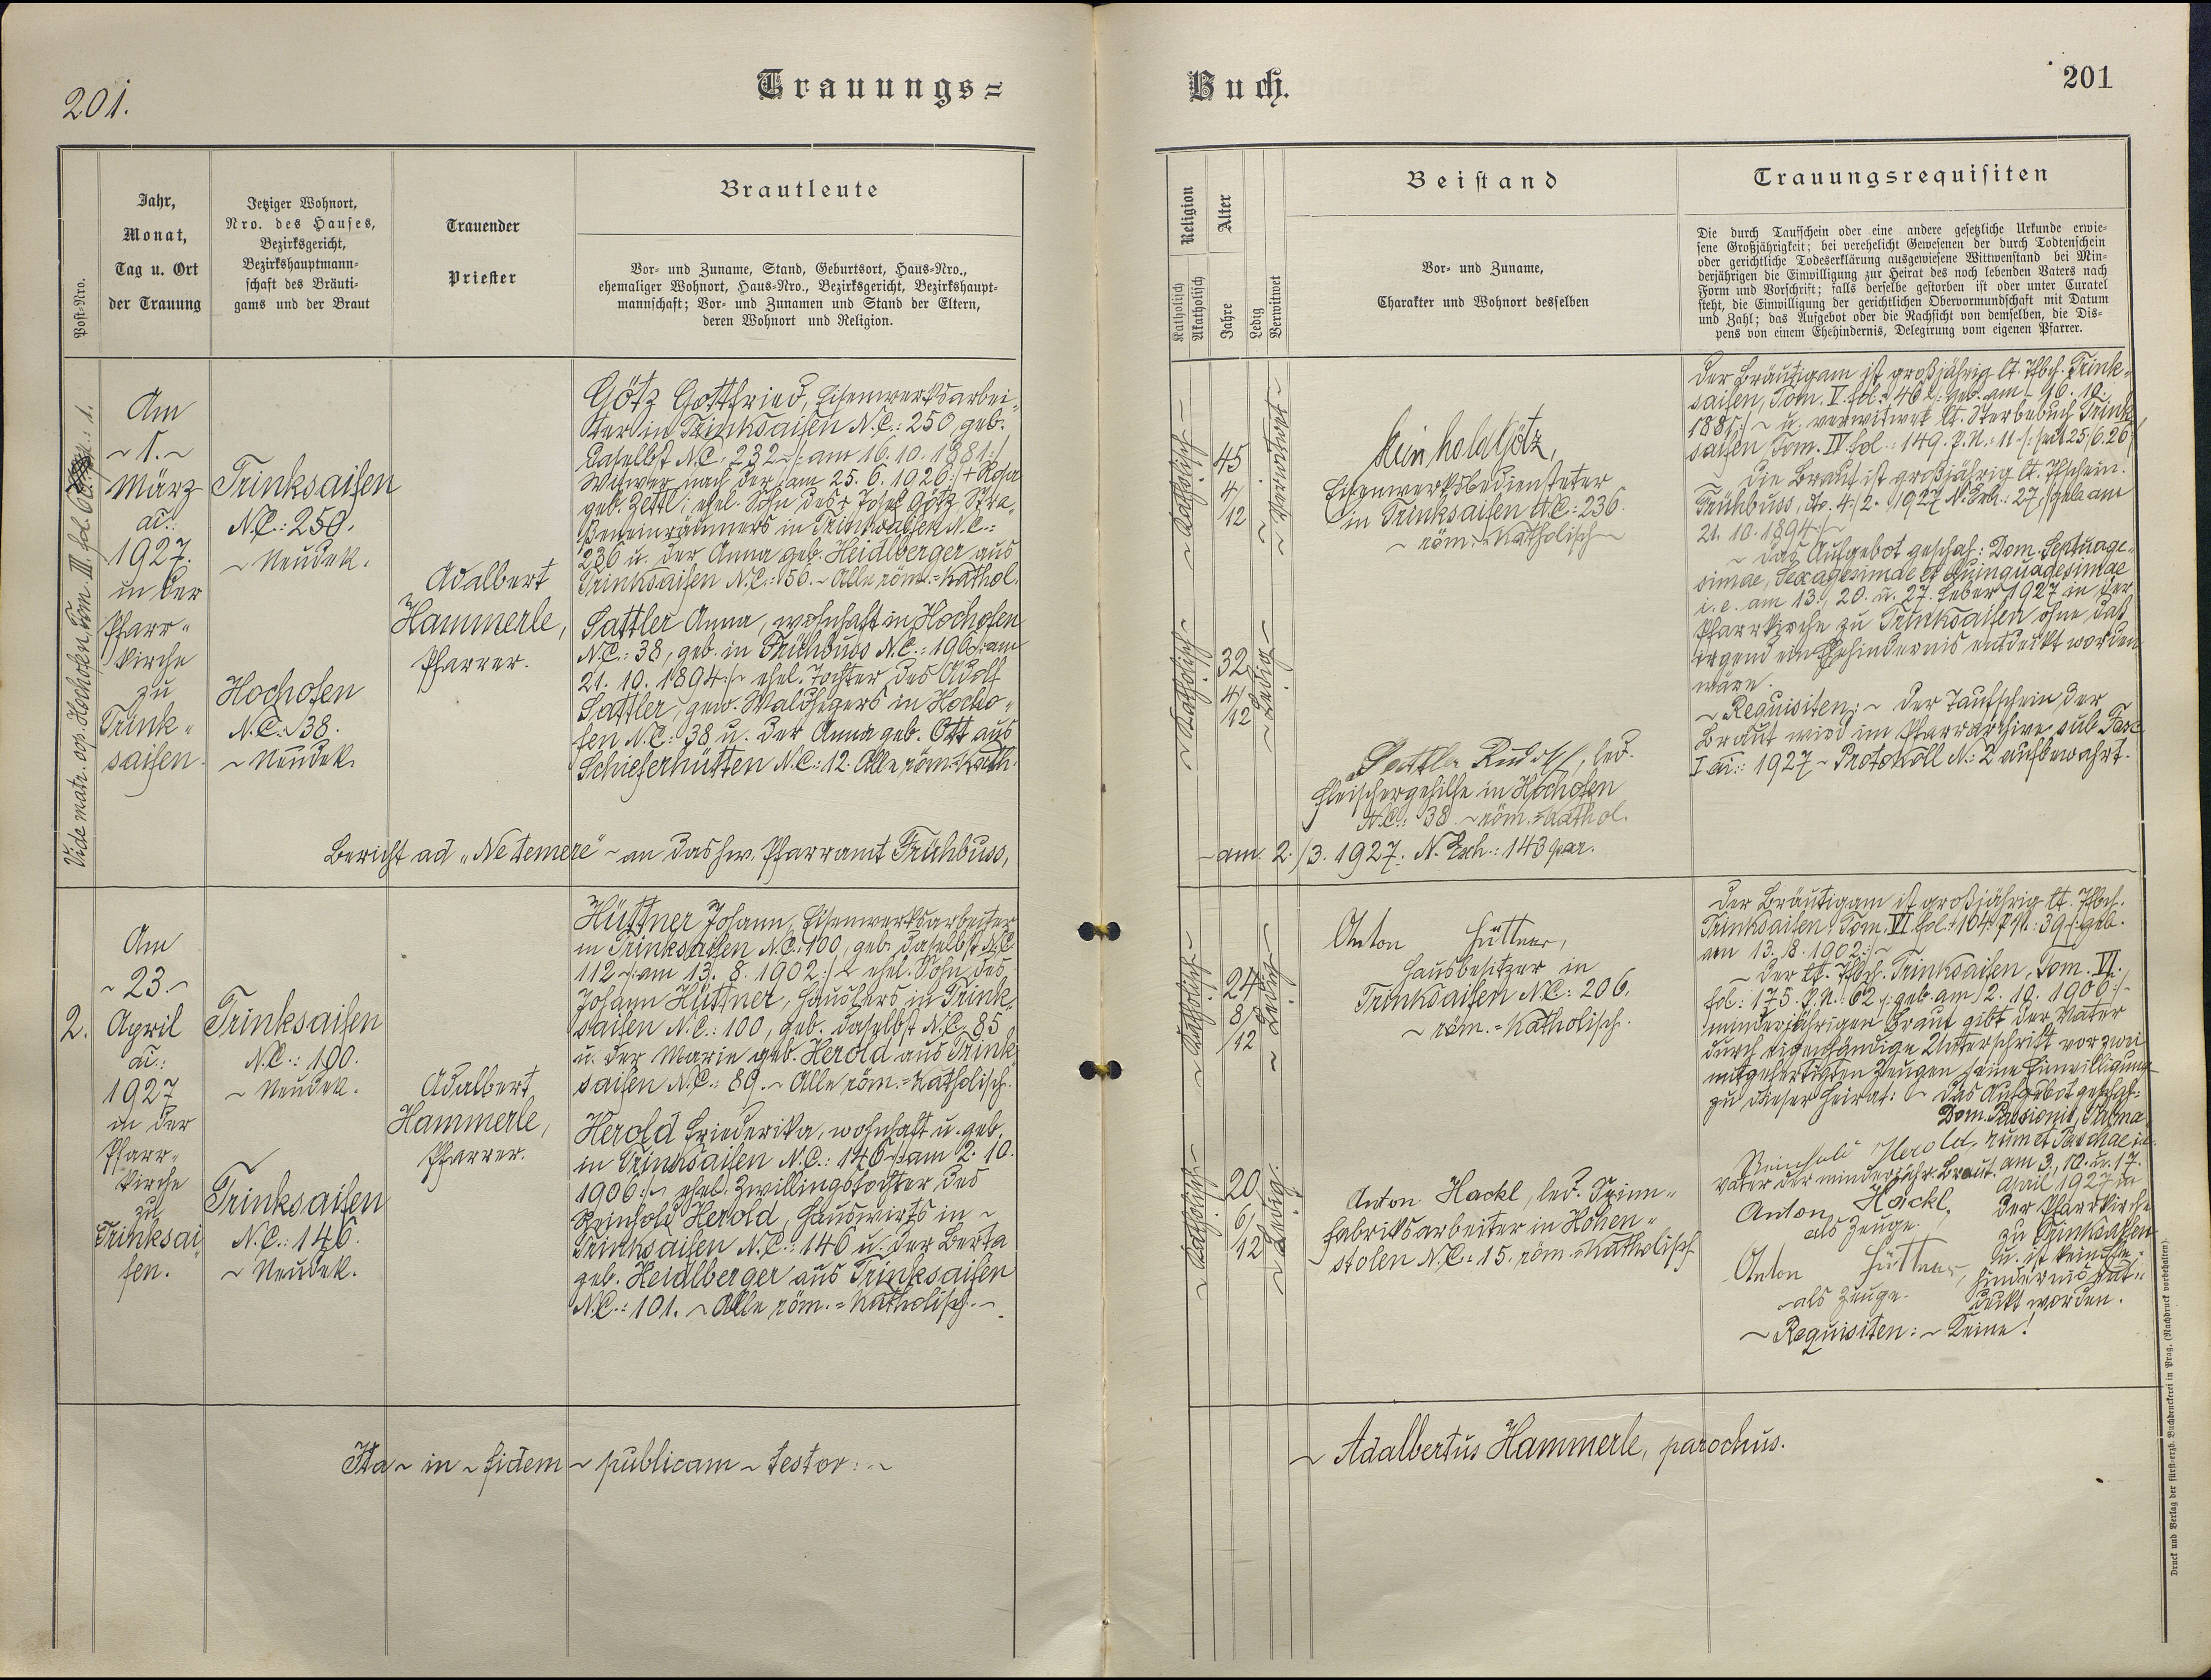 201.
Trauungs=
Post-Nro.
Jahr,
Monat,
Tag u. Ort
der Trauung
Jetziger Wohnort,
Nro. des Hauses,
Bezirksgericht,
Bezirkshauptmann-
schaft des Bräuti-
gams und der Braut
Trauender
Priester
Brautleute
Vor- und Zuname, Stand, Geburtsort, Haus-Nro.,
ehemaliger Wohnort, Haus-Nro., Bezirksgericht, Bezirkshaupt-
mannschaft; Vor- und Zunamen und Stand der Eltern,
deren Wohnort und Religion.
Vide matr. cop. Hochofen, Tom. III. fol. 1.
Am
~ 1. ~
März
ai.:
1927.
in der
Pfarr-
kirche
zu
Trink-
saifen.
Trinksaifen
N.C.: 250.
~ Neudek.
Hochofen
N.C.: 38.
~ Neudek.
Adalbert
Hammerle,
Pfarrer.
Götz Gottfried, Eisenwerksarbei-
ter in Trinksaifen N.C.: 250, geb.
daselbst N.C.: 232 ~ /: am 16. 10. 1881 :/
Witwer nach der /: am 25. 6. 1926 :/ + Rosa
geb. Zettl; ehel. Sohn des + Josef Götz, Stra-
ßeneinräumers in Trinksaifen N.C.:
236 u. der Anna geb. Heidlberger aus
Trinksaifen N.C.: 56. ~ Alle röm.=kathol.
Sattler Anna, wohnhaft in Hochofen
N.C.: 38, geb. in Frühbuss N.C.: 196 /: am
21. 10. 1894 :/ ~ ehel. Tochter des Adolf
Sattler, gew. Waldhegers in Hocho-
fen N.C.: 38 u. der Anna geb. Ott aus
Schieferhütten N.C.: 12. Alle röm.=kath.
Bericht ad „Ne temere" ~ an das hw. Pfarramt Frühbuss,
2.
Am
~ 23. ~
April
ai.:
1927
in der
Pfarr-
kirche
zu
Trinksai
fen.
Trinksaifen
N.C.: 100.
~ Neudek.
Trinksaifen
N.C.: 146.
~ Neudek.
Adalbert
Hammerle,
Pfarrer.
Hüttner Johann, Eisenwerksarbeiter
in Trinksaifen N.C.: 100, geb. daselbst N.C.
112 ~ /: am 13. 8. 1902 :/ ~ ehel. Sohn des
Johann Hüttner, Häuslers in Trink-
saifen N.C.: 100, geb. daselbst N.C. 85
u. der Marie geb. Herold aus Trink-
saifen N.C.: 89. ~ Alle röm.=katholisch.
Herold Friederika, wohnhaft u. geb.
in Trinksaifen N.C.: 146 /: am 2. 10.
1906 :/ ~ ehel. Zwillingstochter des
Reinhold Herold, Hauswirts in ~
Trinksaifen N.C.: 146 u. der Berta
geb. Heidlberger aus Trinksaifen
N.C.: 101. ~ Alle röm.=katholisch. ~
Ita ~ in ~ fidem ~ publicam ~ testor: ~
Buch.
201
Religion
Katholisch
Akatholisch
Alter
Jahre
Ledig
Verwitwet
Beistand
Vor- und Zuname,
Charakter und Wohnort desselben
Trauungsrequisiten
Die durch Taufschein oder eine andere gesetzliche Urkunde erwie-
sene Großjährigkeit; bei verehelicht Gewesenen der durch Todtenschein
oder gerichtliche Todeserklärung ausgewiesene Wittwenstand bei Min-
derjährigen die Einwilligung zur Heirat des noch lebenden Vaters nach
Form und Vorschrift; falls derselbe gestorben ist oder unter Curatel
steht, die Einwilligung der gerichtlichen Obervormundschaft mit Datum
und Zahl; das Aufgebot oder die Nachsicht von demselben, die Dis-
pens von einem Ehehindernis, Delegirung vom eigenen Pfarrer.
~ Katholisch ~
45
4/
12
~ Verwitwet ~
~ Katholisch ~
32
4/
12
~ Ledig ~
Reinhold Götz,
Eisenwerksbediensteter
in Trinksaifen N.C.: 236.
~ röm.=katholisch ~
Sattler Rudolf, led.
Fleischergehilfe in Hochofen
N.C.: 38. ~ röm.=kathol.
~ am 2./3. 1927. N. Exh.: 143 par.
Der Bräutigam ist großjährig lt. Tfbch. Trink-
saifen, Tom. V. fol.: 46 /: geb. am 16. 10.
1881 :/ ~ u. verwitwet lt. Sterbebuch Trink-
saifen Tom. IV. fol.: 149. P.N.: 11 /: seit 25./6. 26 :/
Die Braut ist großjährig lt. Tfschein.
Frühbuss, do. 4./2. 1927 N. Exh.: 27 /: geb. am
21. 10. 1894 :/ ~
~ Das Aufgebot geschah: Dom. Septuage-
simae, Sexagesimae et Quinquagesimae
i. e. am 13., 20. u. 27. Feber 1927 in der
Pfarrkirche zu Trinksaifen ohne daß
irgend ein Ehehindernis entdeckt worden
wäre.
~ Requisiten: ~ Der Taufschein der
Braut wird im Pfarrarchive sub Fasc.
I ai.: 1927 ~ Protokoll N.: 2 aufbewahrt.
~ Katholisch ~
24
8
/12
~ Ledig ~
~ Katholisch ~
20
6/
12
~ Ledig. ~
Anton Hüttner,
Hausbesitzer in
Trinksaifen N.C.: 206.
~ röm.=katholisch.
Anton Hackl, led. Spinn-
fabriksarbeiter in Hohen-
stolen N.C.: 15. röm.=katholisch
Der Bräutigam ist großjährig lt. Tfbch.
Trinksaifen, Tom. VI. fol.: 104. P.N.: 39 /: geb.
am 13. 8. 1902 :/ ~
~ Der lt. Tfbch. Trinksaifen, Tom. VI.
fol.: 175. P.N.: 62 /: geb. am 2. 10. 1906 :/ ~
minderjährigen Braut gibt der Vater
durch eigenhändige Unterschrift vor zwei
mitgefertigten Zeugen seine Einwilligung
zu dieser Heirat: ~ Das Aufgebot geschah:
Dom. Passionis, Palma-
Reinhold Herold, rum et Paschae i. e.
Vater der minderjähr. Braut. am 3., 10. u. 17.
April 1927 in
Anton Hackl, der Pfarrkirche
als Zeuge. zu Trinksaifen
u. ist kein Ehe-
Anton Hüttner, hindernis ent-
~ als Zeuge. deckt worden.
~ Requisiten: ~ Keine!
~ Adalbertus Hammerle, parochus.
Druck und Verlag der fürst-erzb. Buchdruckerei in Prag. (Nachdruck vorbehalten).